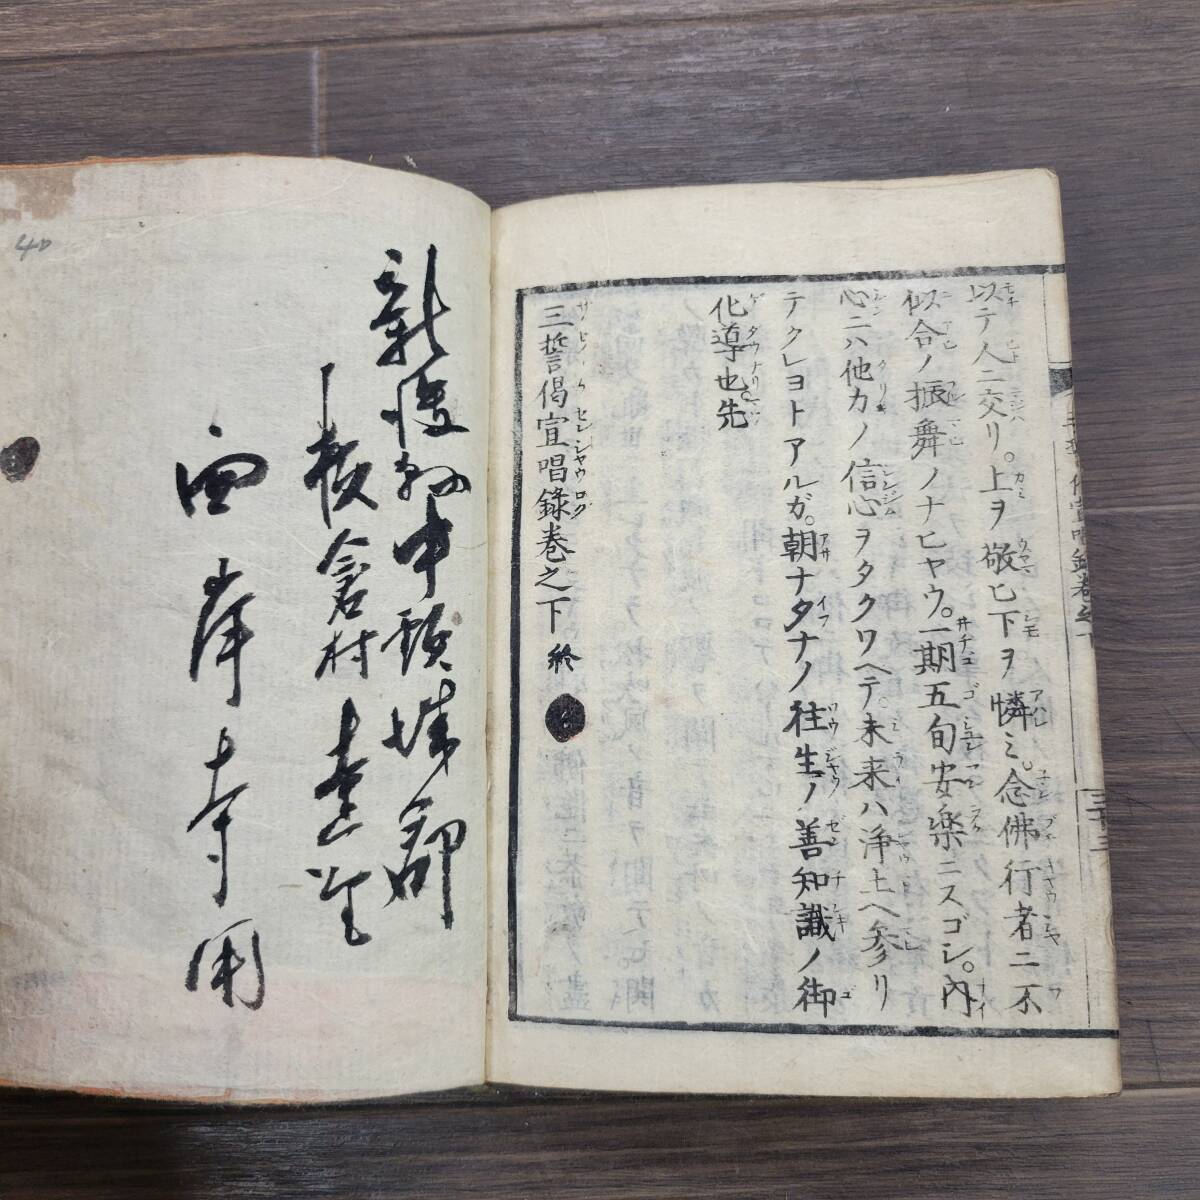 以テ人ニ交リ。上ヲ敬ヒ下ヲ憐ミ。念佛行者ニ不
似合ノ振舞ノナヒヤウ。一期五旬安樂ニスゴシ。内
心ニハ他力ノ信心ヲタクワヘテ。未来ハ浄土ヘ参リ
テクレヨトアルガ。朝ナタナノ往生ノ善知識ノ御
化導也先
三誓偈宣唱録巻之下終
新後州中頚城郡
板倉村
西岸寺用
40